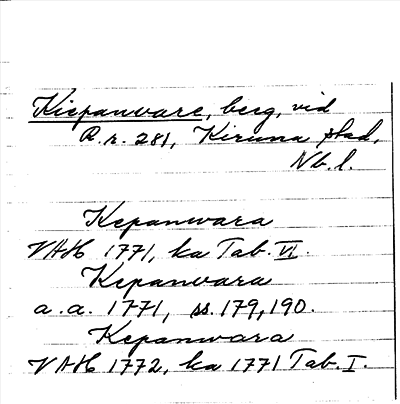 Kiepanvare, berg, vid
R.r. 281, Kiruna stad,
Nb. l.
Kepanwara
VAH 1771, ka Tab. VI.
Kepanvara
a.a. 1771, ss. 179, 190.
Kepanwara
VAH 1772, ka 1771 Tab. I.